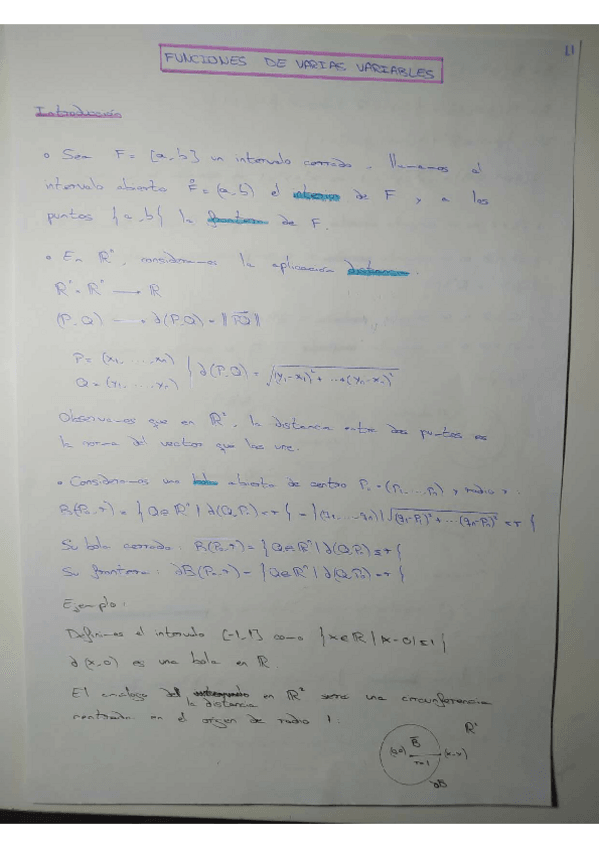 1
FUNCIONES DE VARIAS VARIABLES
Introducción
• Sea F = [a, b] un intervalo cerrado. Llamamos al
intervalo abierto F̊ = (a, b) el interior de F y a los
puntos {a, b} la frontera de F.
• En ℝⁿ, consideramos la aplicación distancia.
ℝⁿ × ℝⁿ → ℝ
(P, Q) → d(P, Q) = ||PQ||
P = (x₁, ..., xₙ)
Q = (y₁, ..., yₙ) / d(P, Q) = √(y₁-x₁)² + ... + (yₙ-xₙ)²
Observamos que en ℝⁿ, la distancia entre dos puntos es
la norma del vector que los une.
• Consideramos una bola abierta de centro P₀ = (P₁, ..., Pₙ) y radio r.
B(P₀, r) = {Q∈ℝⁿ | d(Q, P₀) < r} = {(q₁, ..., qₙ) | √(q₁-P₁)² + ... (qₙ-Pₙ)² < r}
Su bola cerrada: B(P₀, r) = {Q∈ℝⁿ | d(Q, P₀) ≤ r}
Su frontera: ∂B(P₀, r) = {Q∈ℝⁿ | d(Q, P₀) = r}
Ejemplo:
Definimos el intervalo [-1, 1] como {x∈ℝ | |x-0| ≤ 1}
d(x, 0) es una bola en ℝ.
El análogo de la distancia en ℝ² sería una circunferencia
centrada en el origen de radio 1:
ℝ²
B̄
(0,0) r=1 (x, y)
∂B